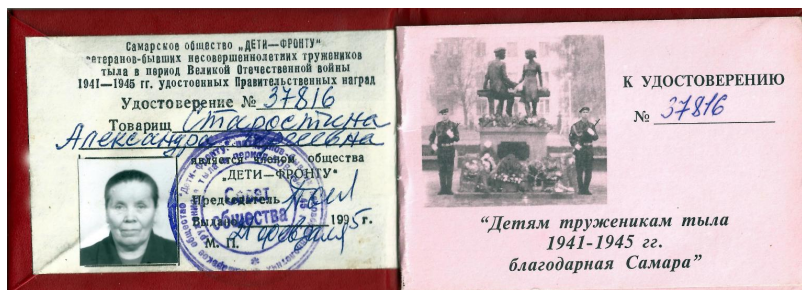 Самарское общество „ДЕТИ—ФРОНТУ"
ветеранов-бывших несовершеннолетних тружеников
тыла в период Великой Отечественной войны
1941—1945 гг. удостоенных Правительственных наград
Удостоверение № 37816
Товарищ Старостина
Александра
является членом общества
„ДЕТИ—ФРОНТУ"
Председатель
Выдано 21 февраля 1995 г.
М. П.
Совет
общества
К УДОСТОВЕРЕНИЮ
№ 37816
“Детям труженикам тыла
1941-1945 гг.
благодарная Самара”